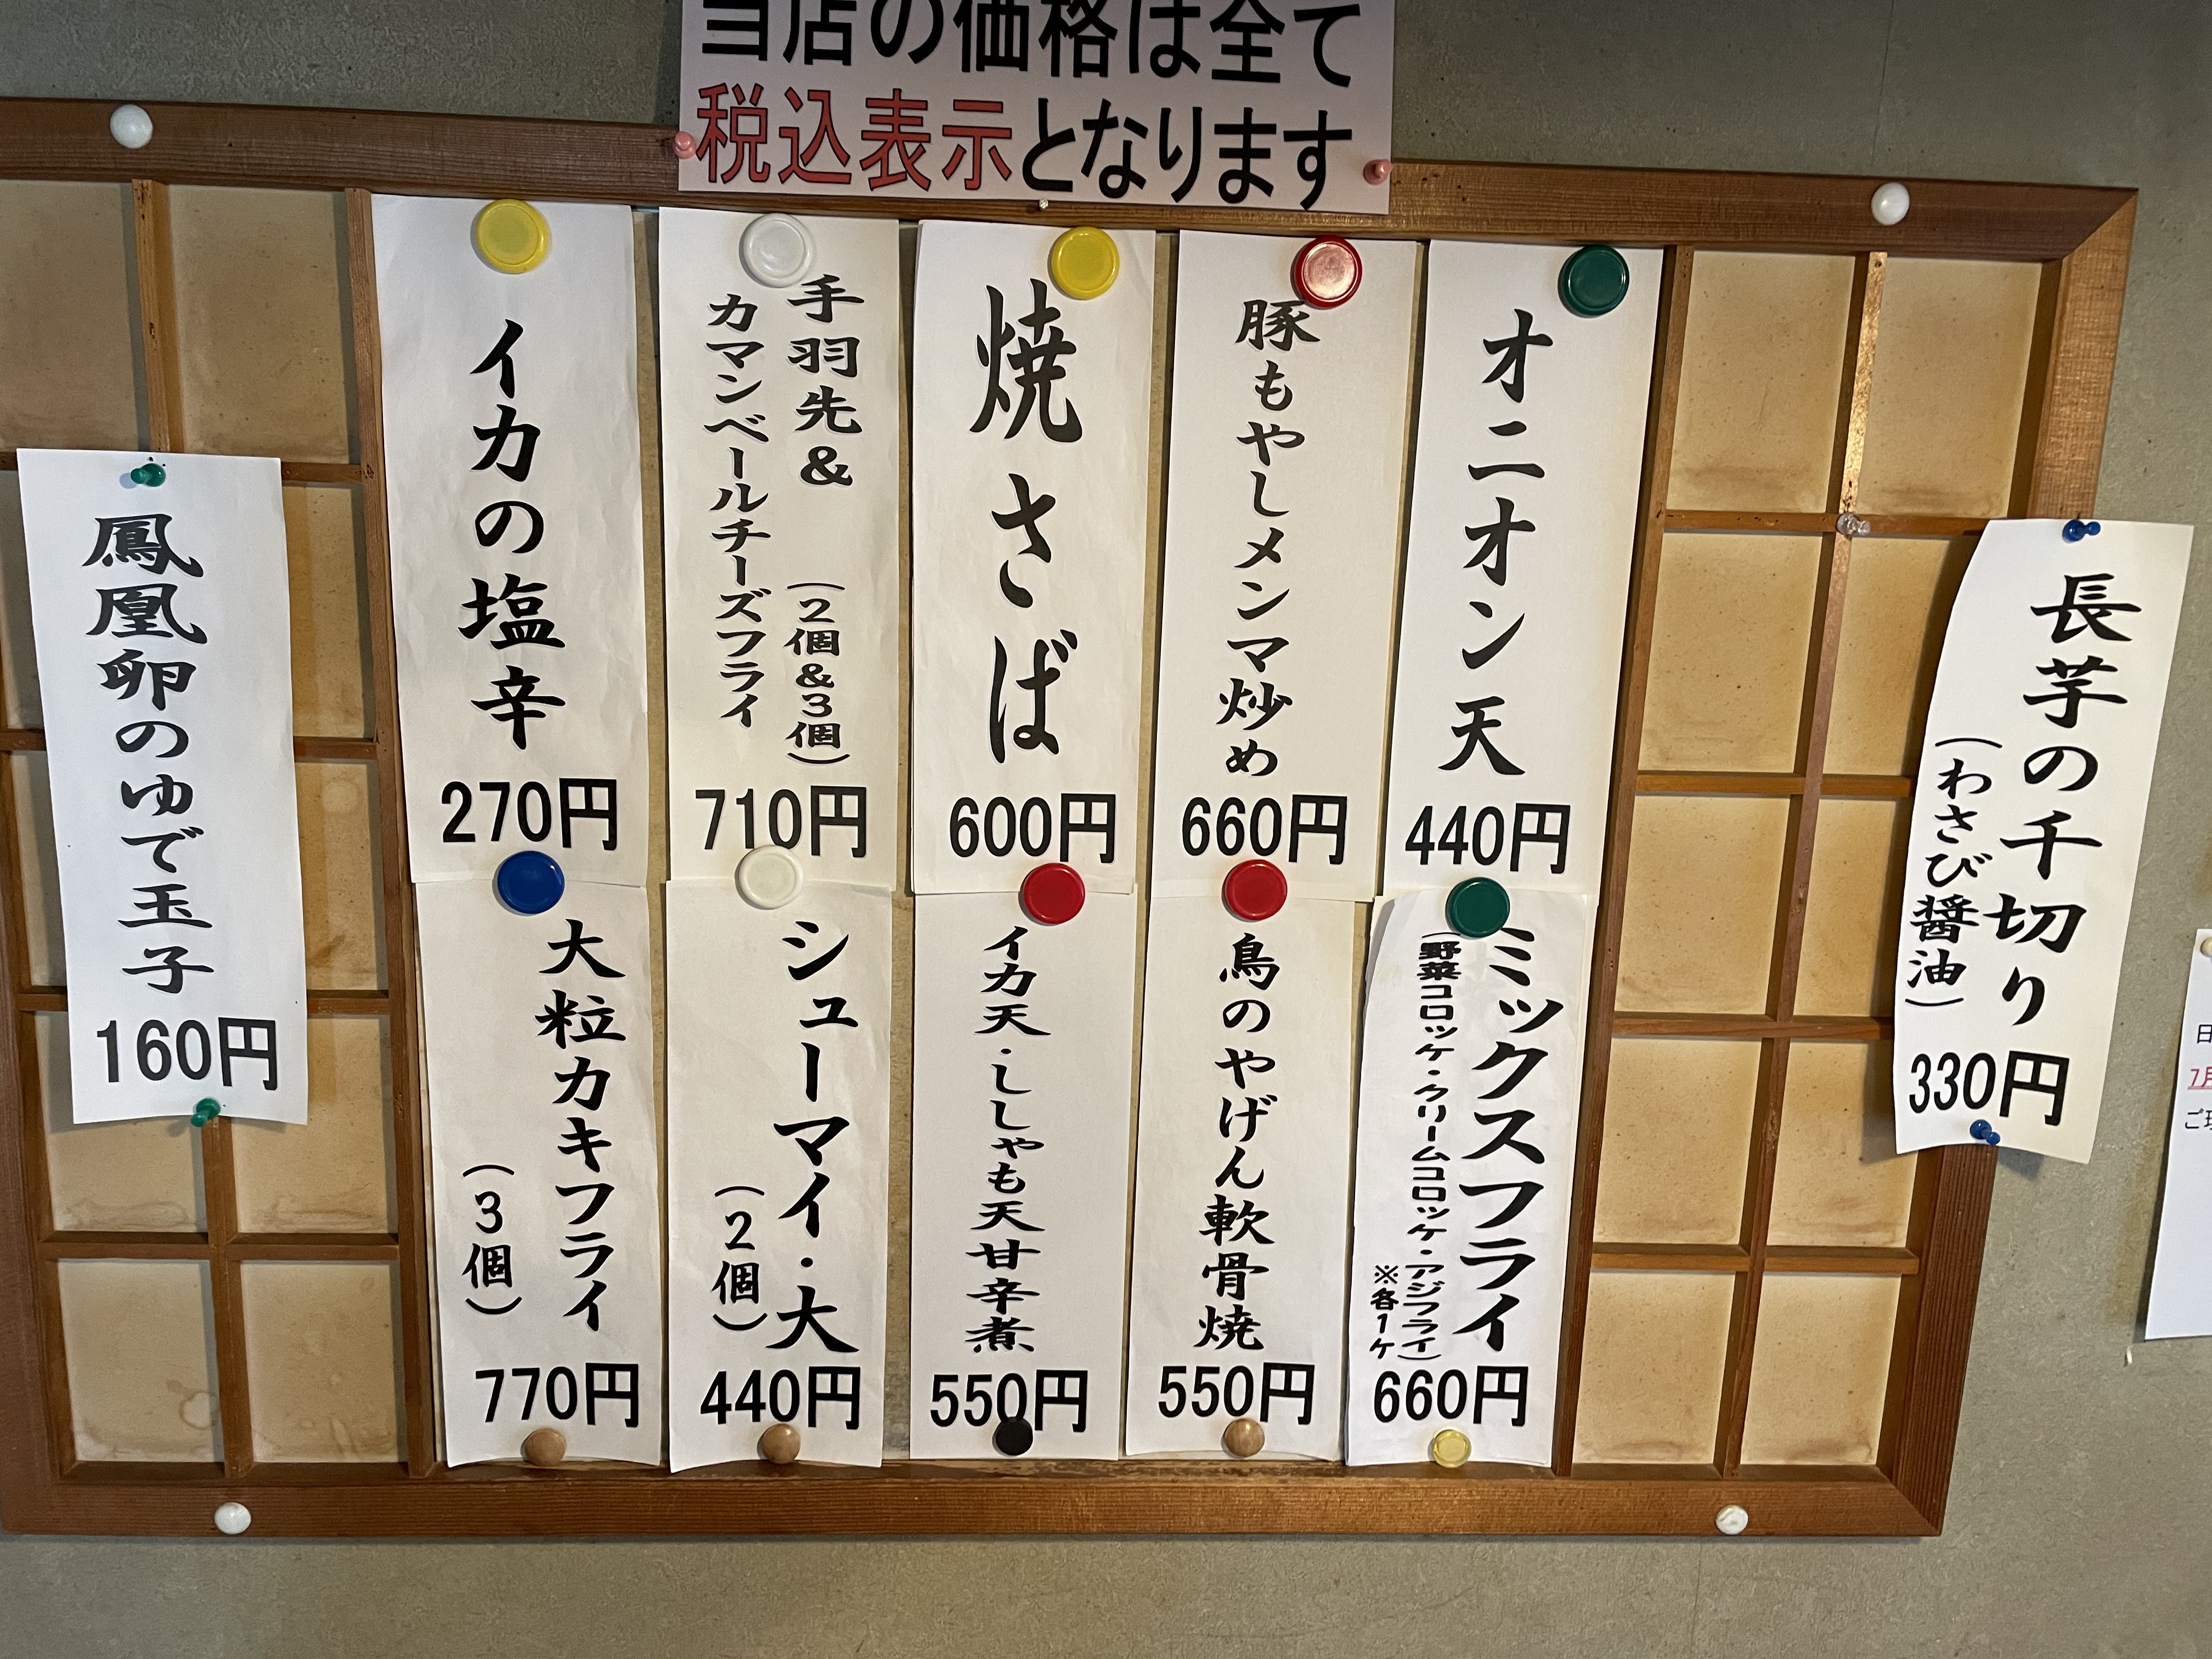 当店の価格は全て
税込表示となります
長芋の千切り
(わさび醤油)
330円
オニオン天
440円
豚もやしメンマ炒め
660円
焼さば
600円
手羽先& (2個&3個)
カマンベールチーズフライ
710円
イカの塩辛
270円
鳳凰卵のゆで玉子
160円
ミックスフライ
(野菜コロッケ・クリームコロッケ・アジフライ)
※各1ケ
660円
鳥のやげん軟骨焼
550円
イカ天・ししゃも天甘辛煮
550円
シューマイ・大
(2個)
440円
大粒カキフライ
(3個)
770円